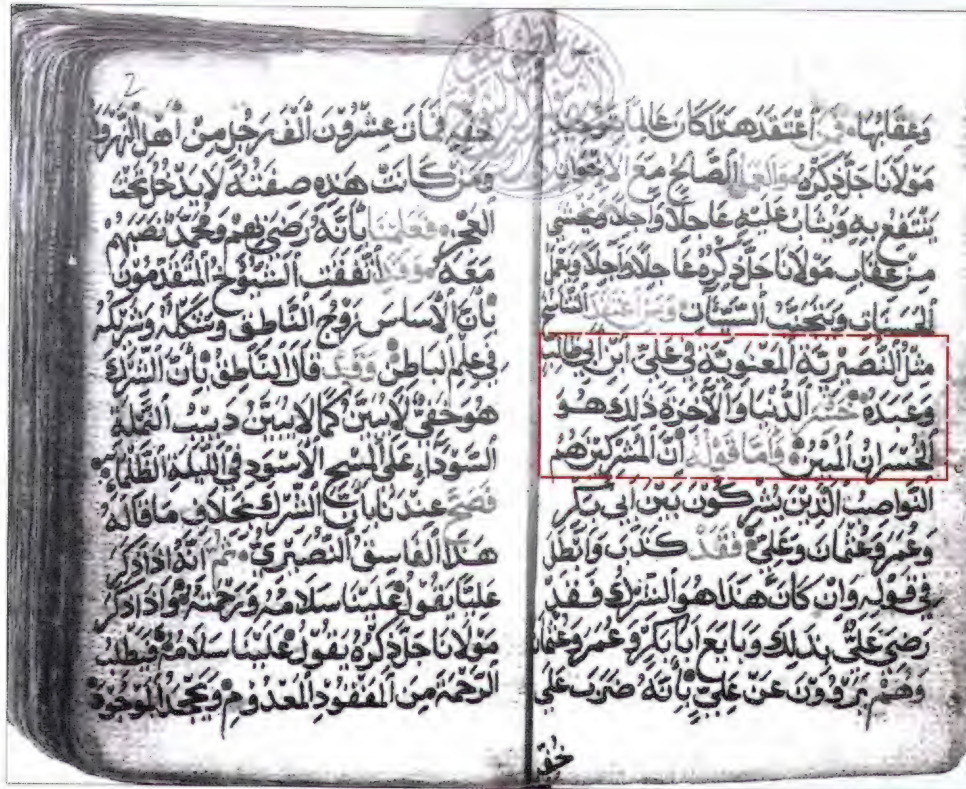 وَعِقَابُهَا فَمَن اَعْتَقَدَ هَذَا كَانَ عَالِمًا بتوحيد
مَوْلَانَا جَلَّ ذِكْرُهُ وَالعمل الصَّالِح مَعَ الاخوان
يَنْتَفِعُ بِهِ وَيُثَابُ عَلَيْهِ عَاجِلًا وَآجِلًا وَيَخْشَى
مِنْ عِقَابِ مَوْلَانَا جَلَّ ذِكْرُهُ عَاجِلًا وَآجِلًا وَيَعْمَل
الْحَسَنَاتِ وَيَتَجَنَّبِ السَّيِّئَاتِ وَمَن اعْتَقَدَ التناسخ
مِثْلُ النُّصَيْرِيَّةِ الْمَعْنَوِيَّة فِي عَلِيّ ابْنِ اَبِي طَالِب
وَعَبَدَهُ خَسِرَ الدُّنْيَا وَالْآخِرَة ذَلِكَ هُوَ
الْخُسْرَانُ الْمُبِينُ فَأَمَّا قَوْلُهُ اَنَّ الْمُشْرِكِينَ هُم
النَّوَاصِبُ الَّذِينَ يُشْرِكُونَ بَيْنَ اَبِي بَكْرٍ
وَعُمَرَ وَعُثْمَانَ وَعَلِيّ فَقَدْ كَذَبَ وَابْطَلَ
فِي قَوْلِهِ وَاِنْ كَانَ هَذَا هُوَ الشِّرْكُ فَقَد
رَضِيَ عَلِيٌّ بِذَلِكَ وَبَايَعَ اَبَا بَكْرٍ وَعُمَرَ وَعُثْمَان
وَهُم يَرْوُونَ عَنْ عَلِيّ بِأَنَّهُ ضَرَبَ عَلَى
خُفِّ
2
خُفِّهِ فَبَانَ عِشْرُونَ اَلْف رَجُل مِنْ أَهْلِ النَّهْرَوَان
وَمَنْ كَانَتْ هَذِهِ صِفَتُهُ لَا يَدْخُل تَحْتَ
الْعَجْزِ فَعَلِمْنَا بِأَنَّهُ رَضِيَ بِهِمْ وَمُحَمَّد نَصَّبَهُمْ
مَعَهُ وَقَدْ اَتَّفَقَتِ الشُّيُوخُ الْمُتَقَدِّمُونَ
بِأَنَّ الْأَسَاسَ زَوْجُ النَّاطِقِ وَشَكْلُهُ وَشَرِيكُهُ
فِي عِلْمِ الْبَاطِنِ وَقَدْ قَالَ النَّاطِقُ بِأَنَّ الشِّرْكَ
هُوَ خَفِيٌّ لَا يَسْتَبِنُ كَمَا لَا يَسْتَبِنُ دَبِيبُ النَّمْلَةِ
السَّوْدَاءِ عَلَى الْمِسْحِ الْأَسْوَدِ فِي اللَّيْلَةِ الظَّلْمَاءِ
فَصَحَّ عِنْدَنَا بِأَنَّ الشِّرْكَ بِخِلَافِ مَا قَالَهُ
هَذَا الْفَاسِقُ النُّصَيْرِيُّ ثُمَّ اَنَّهُ اِذَا ذَكَرَ
عَلِيًّا يَقُولُ عَلَيْنَا سَلَامُهُ وَرَحْمَتُهُ وَاِذَا ذَكَرَ
مَوْلَانَا جَلَّ ذِكْرُهُ يَقُولُ عَلَيْنَا سَلَامُهُ فَيَطْلُبُ
الرَّحْمَةَ مِنَ الْمَفْقُودِ الْمَعْدُومِ وَيَجْحَدُ الْمَوْجُودَ